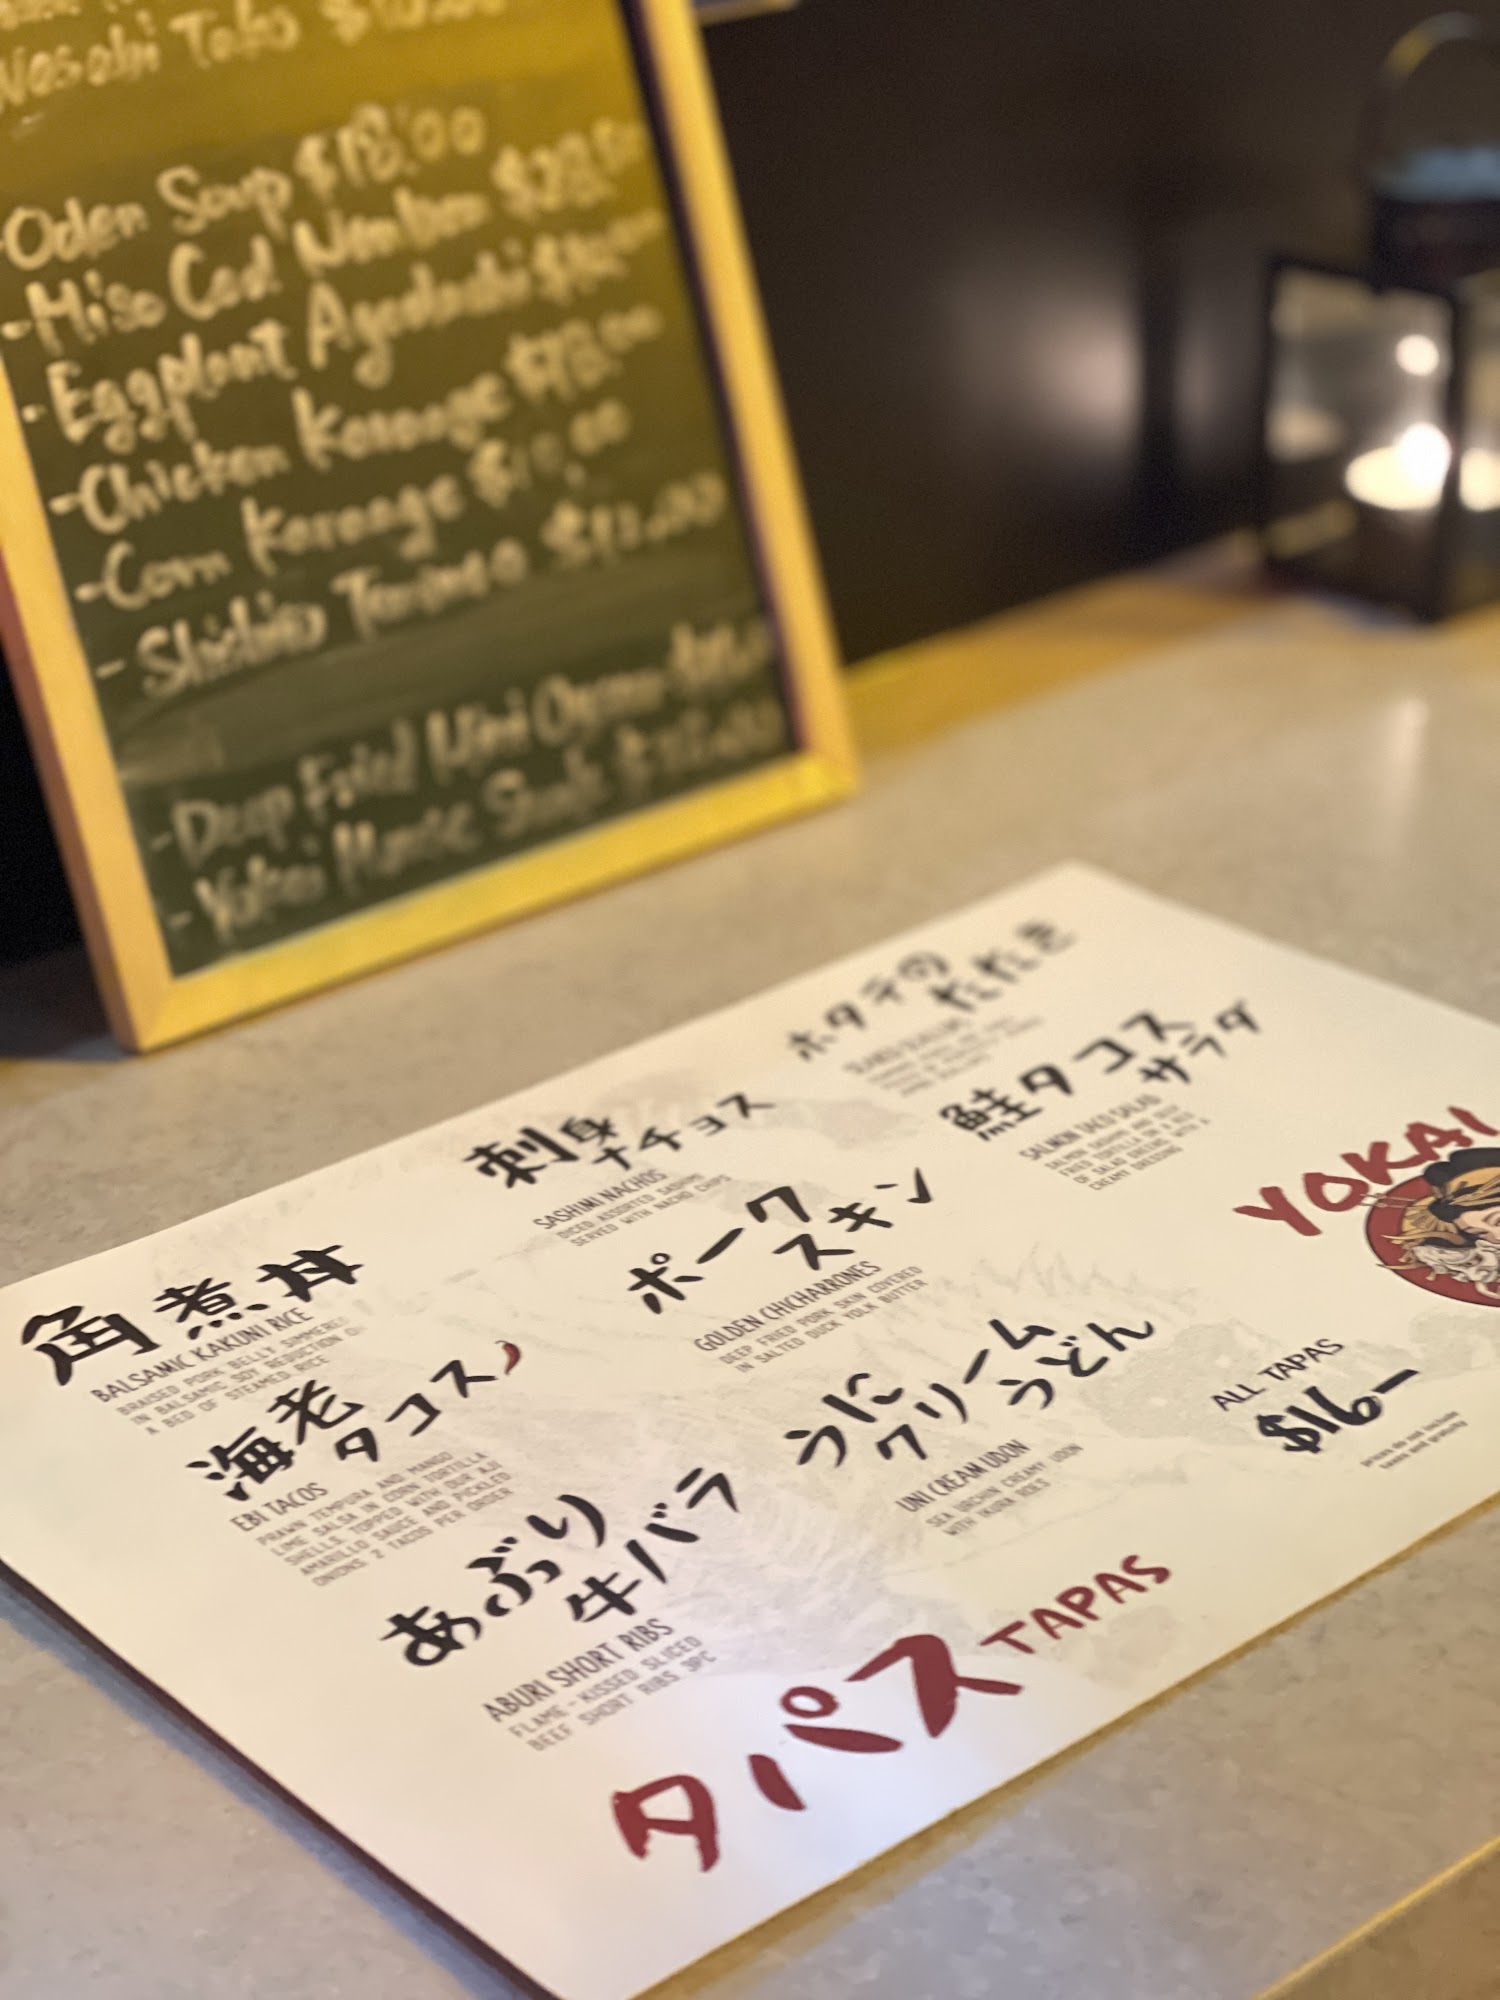 Wasabi Tako $10.00
-Oden Soup $18.00
-Miso Cod Nanban
-Eggplant Agedashi
-Chicken Karaage $18.00
-Corn Karaage
-Shishito
-Deep Fried Mini
-Yokai
ホタテの
たたき
鮭タコス
サラダ
SALMON TACO SALAD
SALMON SASHIMI AND DEEP
FRIED TORTILLA ON A BED
OF SALAD GREENS WITH A
CREAMY DRESSING
刺身
ナチョス
SASHIMI NACHOS
DICED ASSORTED SASHIMI
SERVED WITH NACHO CHIPS
ポーク
スキン
GOLDEN CHICHARRONES
DEEP FRIED PORK SKIN COVERED
IN SALTED DUCK YOLK BUTTER
角煮丼
BALSAMIC KAKUNI RICE
BRAISED PORK BELLY SIMMERED
IN BALSAMIC SOY REDUCTION
A BED OF STEAMED RICE
海老
タコス
EBI TACOS
PRAWN TEMPURA AND MANGO
LIME SALSA IN CORN TORTILLA
SHELLS TOPPED WITH OUR AJI
AMARILLO SAUCE AND PICKLED
ONIONS 2 TACOS PER ORDER
うに
クリーム
うどん
UNI CREAM UDON
SEA URCHIN CREAMY UDON
WITH IKURA
あぶり
牛バラ
ABURI SHORT RIBS
FLAME-KISSED SLICED
BEEF SHORT RIBS 3PC
YOKAI
ALL TAPAS
$16-
prices do not include
taxes and gratuity
タパス TAPAS